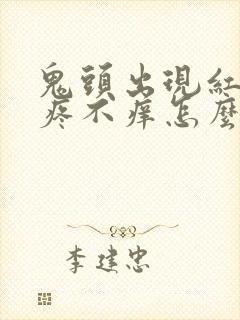 鬼頭出現紅
疼不痒怎麼
李建忠